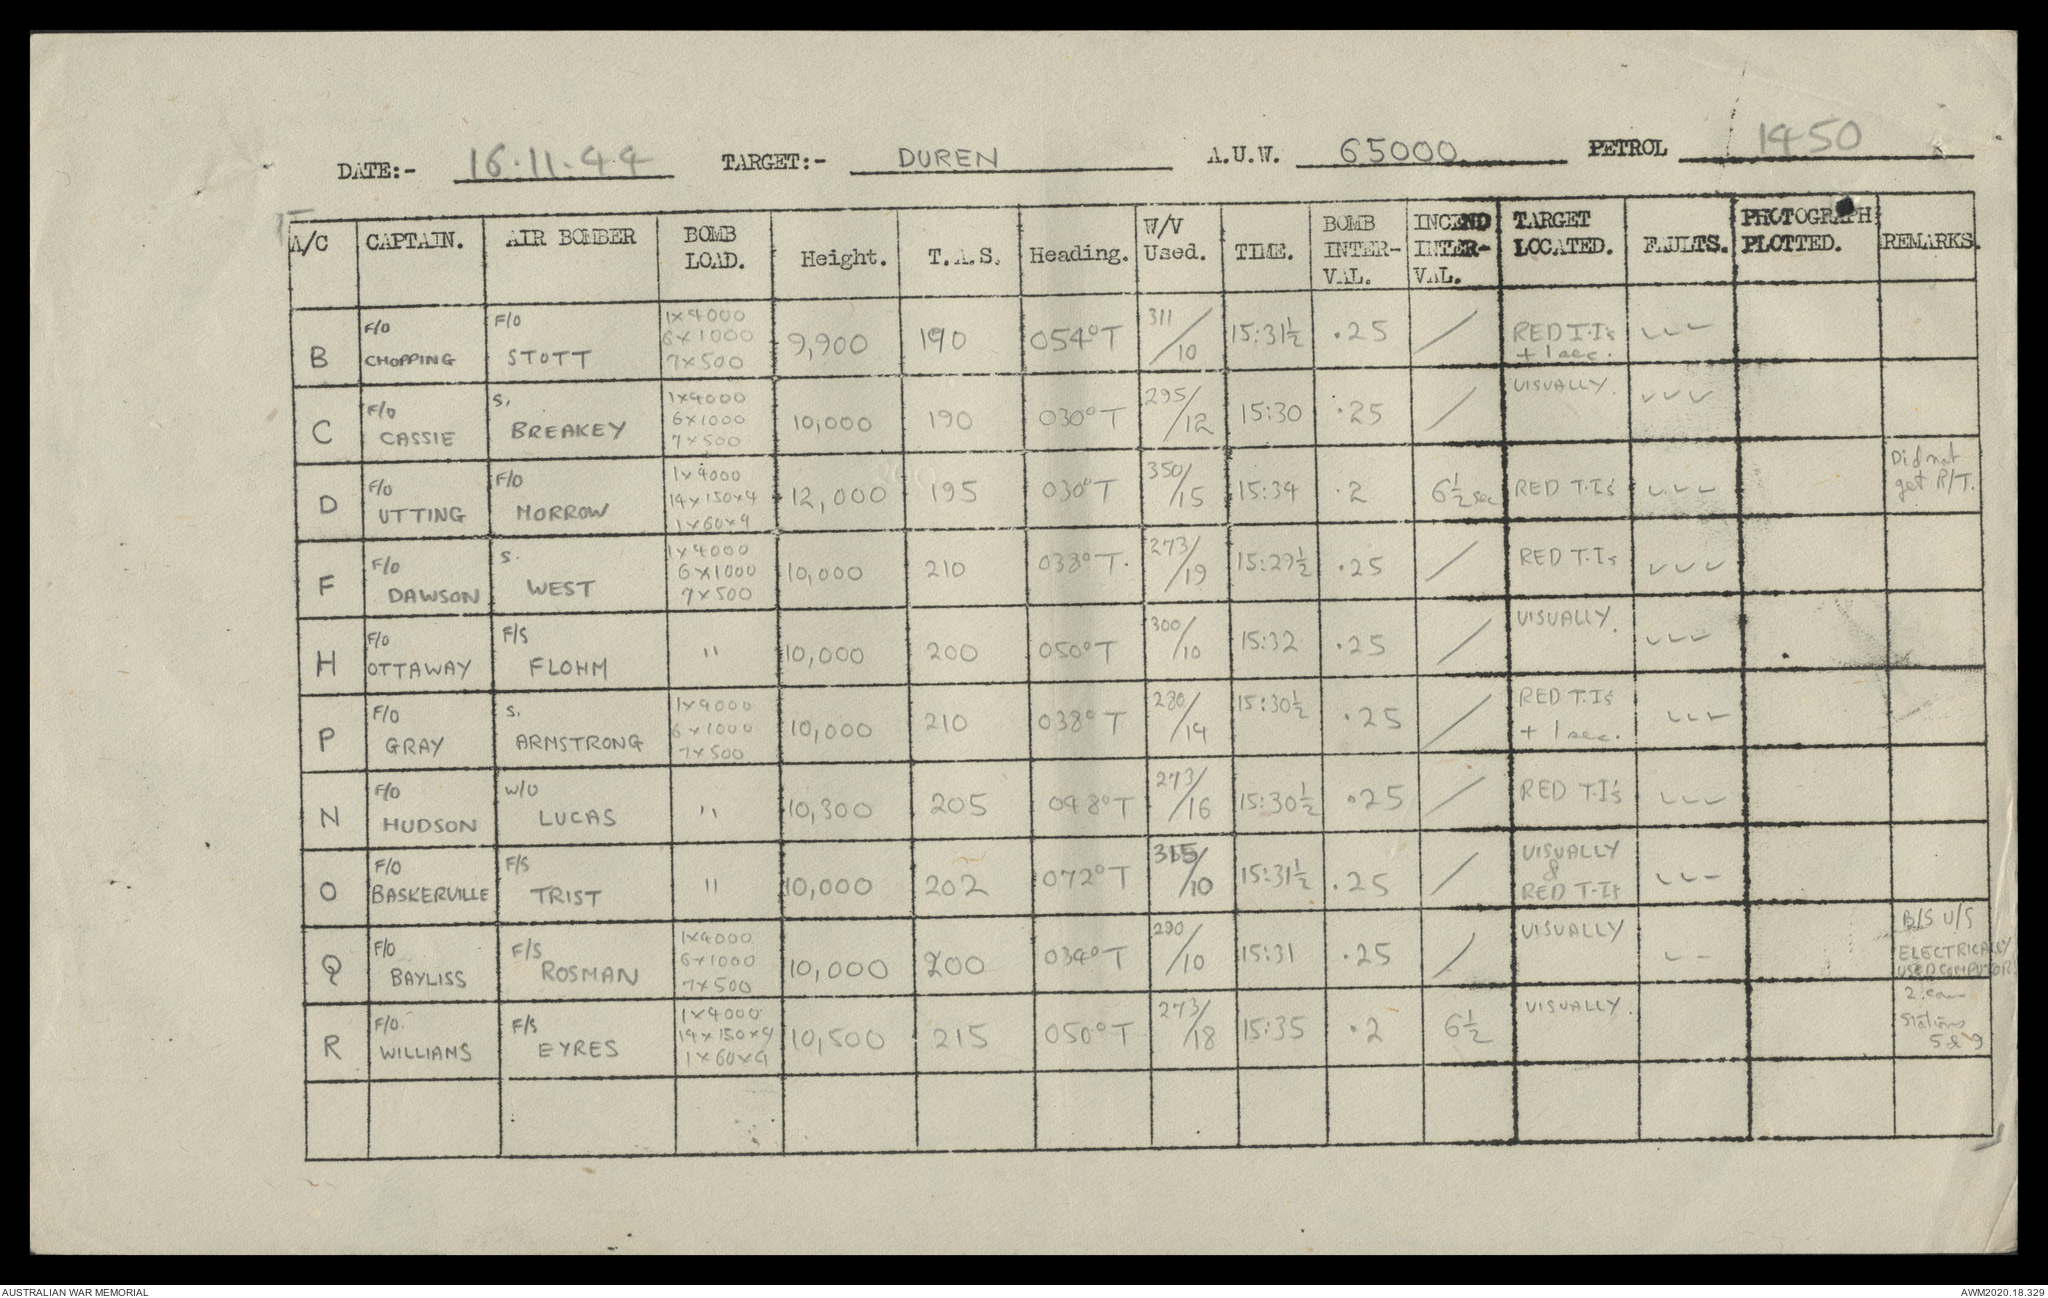 DATE:- 16.11.44 TARGET:- DUREN A.U.W. 65000 PETROL 1450
A/C CAPTAIN. AIR BOMBER BOMB LOAD. Height. T.A.S. Heading. W/V Used. TIME. BOMB INTER-VAL. INCEND INTER-VAL. TARGET LOCATED. FAULTS. PHOTOGRAPH PLOTTED. REMARKS.
B F/O CHOPPING F/O STOTT 1x4000 6x1000 7x500 9,900 190 054°T 311/10 15:31½ .25 / RED T.Is + 1 sec. ✓✓✓
C F/O CASSIE S. BREAKEY 1x4000 6x1000 7x500 10,000 190 030°T 295/12 15:30 .25 / VISUALLY. ✓✓✓
D F/O UTTING F/O MORROW 1x4000 14x150x4 1x60x4 12,000 195 030°T 350/15 15:34 .2 6½ sec RED T.Is ✓✓✓ Did not get R/T.
F F/O DAWSON S. WEST 1x4000 6x1000 7x500 10,000 210 038°T. 273/19 15:29½ .25 / RED T.Is ✓✓✓
H F/O OTTAWAY F/S FLOHM " 10,000 200 050°T 300/10 15:32 .25 / VISUALLY. ✓✓✓
P F/O GRAY S. ARMSTRONG 1x4000 6x1000 7x500 10,000 210 038°T 280/14 15:30½ .25 / RED T.Is + 1 sec. ✓✓✓
N F/O HUDSON W/O LUCAS " 10,300 205 048°T 273/16 15:30½ .25 / RED T.I's ✓✓✓
O F/O BASKERVILLE F/S TRIST " 10,000 202 072°T 315/10 15:31½ .25 / VISUALLY & RED T.Is ✓✓-
Q F/O BAYLISS F/S ROSMAN 1x4000 6x1000 7x500 10,000 200 034°T 290/10 15:31 .25 / VISUALLY ✓- B/S U/S ELECTRICALLY USED COMPUTOR
R F/O WILLIAMS F/S EYRES 1x4000 14x150x4 1x60x4 10,500 215 050°T 273/18 15:35 .2 6½ VISUALLY. 2 Stations 5 & 9
AUSTRALIAN WAR MEMORIAL AWM2020.18.329